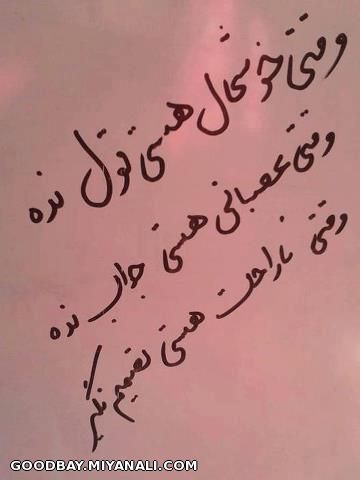 وقتی خوشحال هستی قول نده
وقتی عصبانی هستی جواب نده
وقتی ناراحت هستی تصمیم نگیر
GOODBAY.MIYANALI.COM